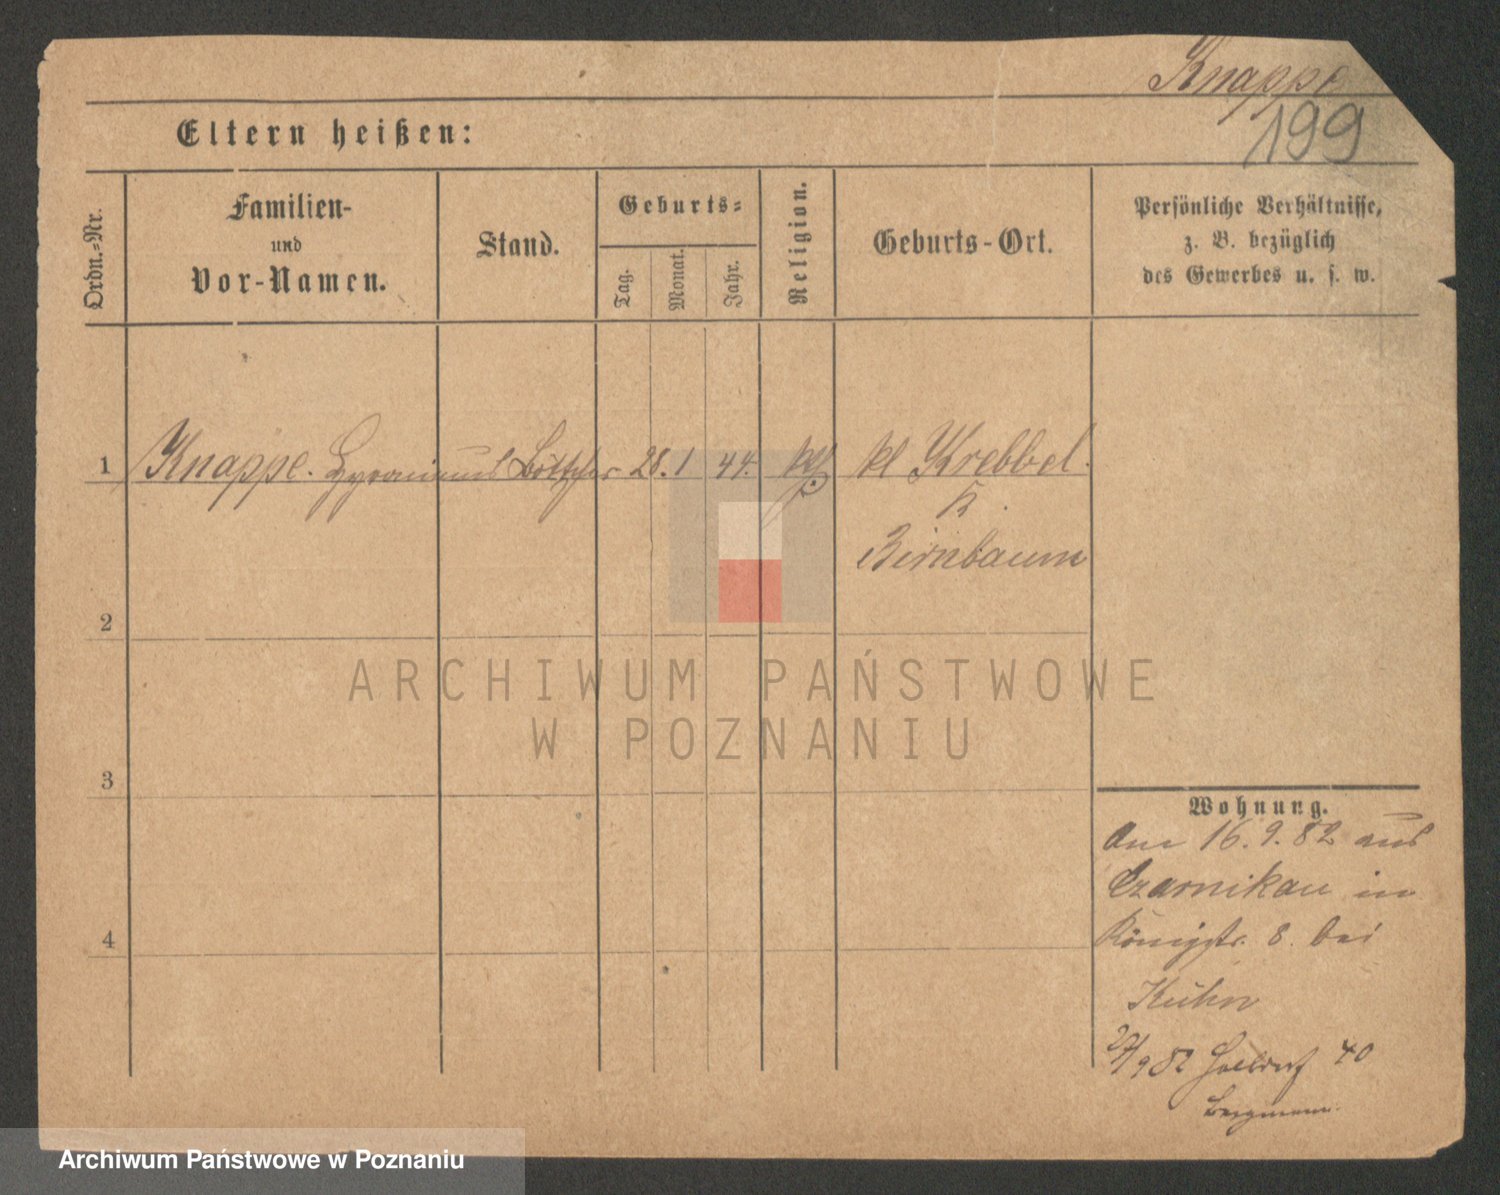 Knappe
199
Eltern heißen:
Ordn.-Nr.
Familien-
und
Vor-Namen.
Stand.
Geburts-
Tag.
Monat.
Jahr.
Religion.
Geburts-Ort.
Persönliche Verhältnisse,
z. B. bezüglich
des Gewerbes u. s. w.
1 Knappe. Hyronimus Böttcher 28. 1 44. kl Krebbel.
K.
Birnbaum
2
3
4
Wohnung.
Am 16.9.82 aus
Czarnikau in
Königstr. 8. bei
Kuhn
9 82 Halldorf 40
Bergmann.
ARCHIWUM PAŃSTWOWE
W POZNANIU
Archiwum Państwowe w Poznaniu